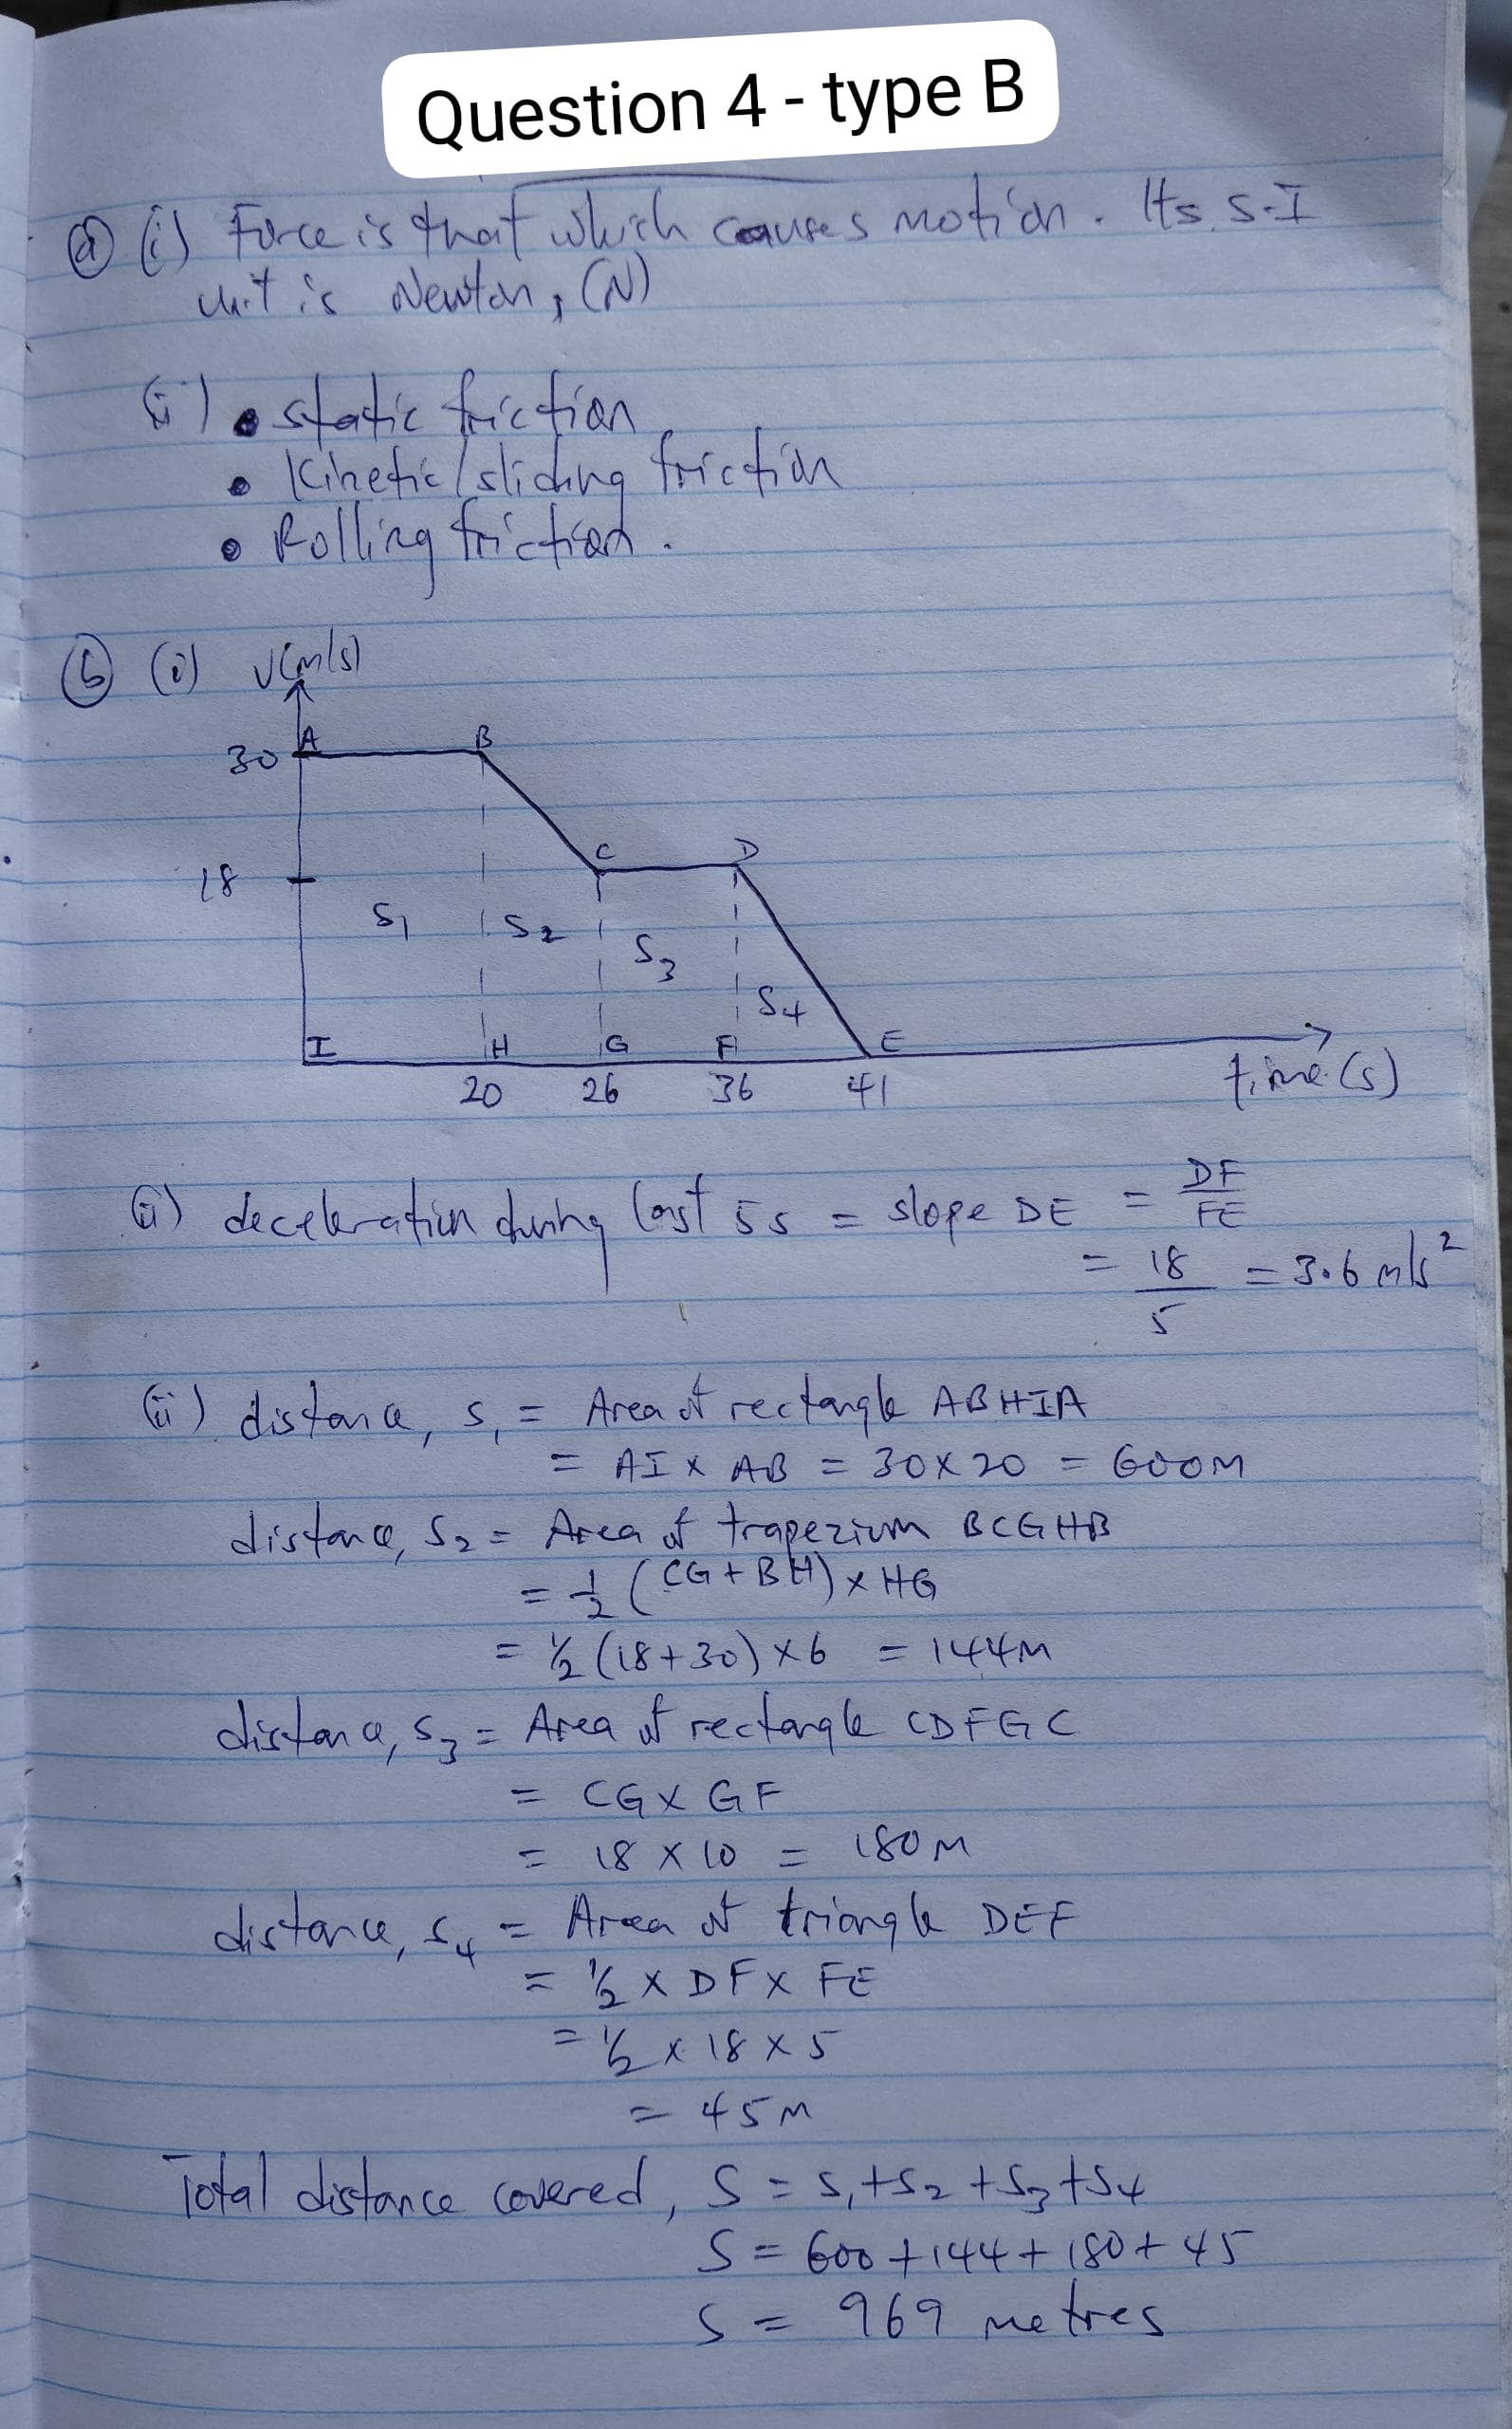 Question 4 - type B
(a) (i) Force is that which causes motion. Its S.I
unit is Newton, (N)
(ii) • static friction
• Kinetic/sliding friction
• Rolling friction.
(b) (i) V(m/s)
30 A B
C D
18
S₁ S₂ S₃ S₄
I H G F E
20 26 36 41 time(s)
(ii) deceleration during last 5s = slope DE = DF/FE
= 18/5 = 3.6 m/s²
(iii) distance, S₁ = Area of rectangle ABHIA
= AI × AB = 30×20 = 600m
distance, S₂ = Area of trapezium BCGHB
= ½ (CG+BH) × HG
= ½ (18+30) × 6 = 144m
distance, S₃ = Area of rectangle CDFGC
= CG × GF
= 18 × 10 = 180m
distance, S₄ = Area of triangle DEF
= ½ × DF × FE
= ½ × 18 × 5
= 45m
Total distance covered, S = S₁+S₂+S₃+S₄
S = 600+144+180+45
S = 969 metres